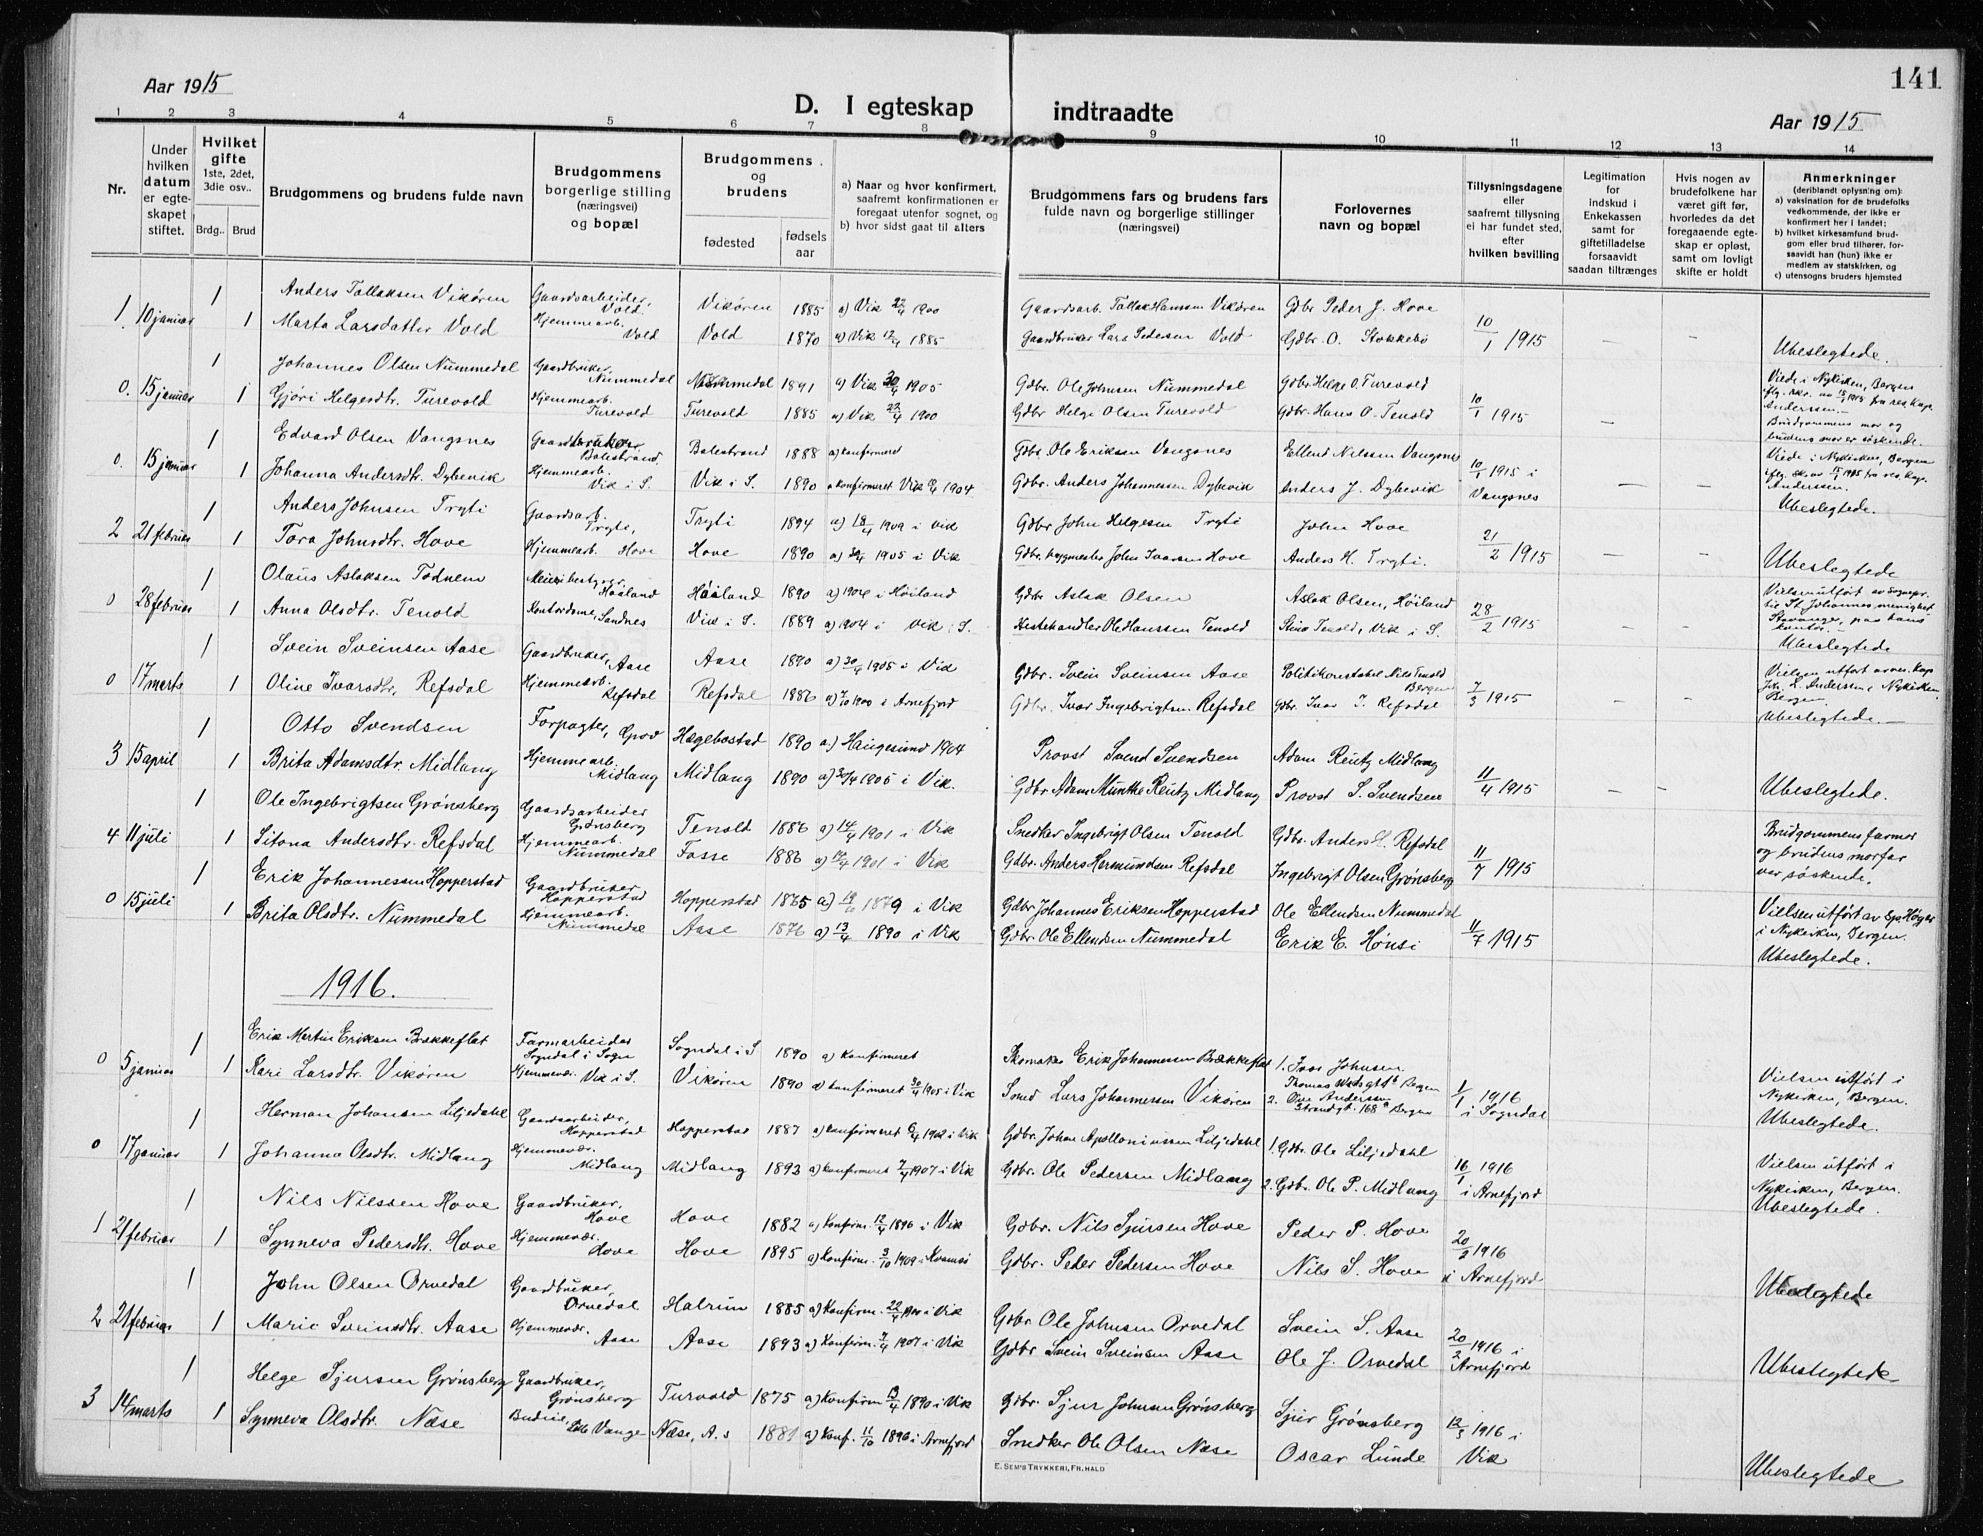 141
Aar 1915
Aar 1915
D. I egteskap indtraadte
1 2 3 4 5 6 7 8 9 10 11 12 13 14
Nr.
Under hvilken datum er egteskapet stiftet.
Hvilket gifte 1ste, 2det, 3die osv..
Brdg.. Brud
Brudgommens og brudens fulde navn
Brudgommens borgerlige stilling (næringsvei) og bopæl
Brudgommens og brudens
fødested
fødselsaar
a) Naar og hvor konfirmert, saafremt konfirmationen er foregaat utenfor sognet, og
b) hvor sidst gaat til alters
Brudgommens fars og brudens fars fulde navn og borgerlige stillinger (næringsvei)
Forlovernes navn og bopæl
Tillysningsdagene eller saafremt tillysning ei har fundet sted, efter hvilken bevilling
Legitimation for indskud i Enkekassen samt for giftetilladelse forsaavidt saadan tiltrænges
Hvis nogen av brudefolkene har været gift før, hvorledes da det foregaaende egteskap er opløst, samt om lovligt skifte er holdt
Anmerkninger (deriblandt oplysning om):
a) vaksination for de brudefolks vedkommende, der ikke er konfirmert her i landet;
b) hvilket kirkesamfund brudgom eller brud tilhører, forsaavidt han (hun) ikke er medlem av statskirken, og
c) utensogns brudens hjemsted
1. 10 januar 1 Anders Tollaksen Vikøren Gaardsarbeider, Vold Vikøren 1885 a) Vik 22/4 1900 Gaardsarb. Tollak Hansen Vikøren Gdbr Peder J. Hove 10/1 1915
1 Marta Larsdatter Vold Hjemmearb. Vold Vold 1870 a) Vik 12/4 1885 Gaardbruker Lars Pedersen Vold Gdbr. O. Stokkebø Ubeslegtede.
0. 15 januar 1 Johannes Olsen Nummedal Gaardbruker, Nummedal Nummedal 1891 a) Vik 30/4 1905 Gdbr. Ole Johnsen Nummedal Gdbr Helge O. Turevold 10/1 1915 Viede i Nykirken, Bergen
1 Gjøri Helgesdtr. Turevold Hjemmearb. Turevold Turevold 1885 a) Vik 22/4 1900 Gdbr Helge Olsen Turevold Gdbr. Hans O. Tenold Anderssen. - Brudgommens mor og brudens mor er søskende.
0. 15 januar 1 Edvard Olsen Vangsnes Gaardbruker Balestrand. Balestrand 1888 a) konfirmert Gdbr. Ole Eriksen Vangsnes Ellend Nilssen Vangsnes 10/1 1915 i Vangsnes Viede i Nykirken, Bergen
1 Johanna Andersdtr. Dybevik Hjemmearb. Vik i S. Vik i S. 1890 a konfirmeret Vik 1904 Gdbr. Anders Johannessen Dybevik Anders J. Dybevik Anderssen. Ubeslegtede.
2 21 februar 1 Anders Johnsen Tryti Gaardsarb. Tryti, Tryti 1894 a) 18/4 1909 i Vik Gdbr John Helgesen Tryti John Hove 21/2 1915
1 Tora Johnsdtr. Hove Hjemmearb. Hove Hove 1890 a) 30/4 1905 i Vik Gdbr. bygmester John Ivarsen Hove Anders H. Tryti. Ubeslegtede
0 28 februar 1 Olaus Aslaksen Tødnem Meieribestyrer, Høiland Høiland 1890 a) 1904 i Høiland Gdbr Aslak Olsen Aslak Olsen, Høiland 28/2 1915 Vielsen utført av Sognepr. til St. Johannes menighet Stavanger, paa hans kontor. -
1 Anna Olsdtr. Tenold Kontordame, Sandnes Vik i S. 1889 a) 1904 i Vik i S. Hestehandler Ole Hanssen Tenold Stina Tenold, Vik i S. Ubeslegtede
0 17 marts 1 Svein Sveinsen Aase Gaardbruker, Aase Aase 1890 a) 30/4 1905 i Vik Gdbr. Svein Sveinsen Aase Politikonstabel Nils Tenold Bergen 7/3 1915
1 Oline Ivarsdtr. Refsdal Hjemmearb. Refsdal Refsdal 1886 a) 7/10 1900 i Arnefjord Gdbr. Ivar Ingebrigtsen Refsdal Gdbr. Ivar I. Refsdal Bergen. Ubeslegtede. -
3 15 april 1 Otto Svendsen Forpagter, Hægebostad 1890 a.) Haugesund 1904 Provst Svend Svendsen Adam Reutz Midlang 11/4 1915
1 Brita Adamsdtr. Midlang Hjemmearb. Midlang Midlang 1890 a) 30/4 1905 i Vik. Gdbr Adam Munthe Reutz Midlang Provst S. Svendsen Ubeslegtede.
4 11 juli 1 Ole Ingebrigtsen Grønsberg Gaardsarbeider Grønsberg Tenold 1886 a) 14/4 1901 i Vik Snedker Ingebrigt Olsen Tenold Gdbr. Anders H. Refsdal 11/7 1915 Brudgommens farmor og brudens morfar
1 Sitona Andersdtr. Refsdal Hjemmearb. Nummedal Fosse 1886 a) 14/4 1901 i Vik Gdbr. Anders Hermundsen Refsdal Ingebrigt Olsen Grønsberg var søskende.
0 15 juli 1 Erik Johannessen Hopperstad Gaardbruker Hopperstad Hopperstad 1865 a) 1879 i Vik Gdbr Johannes Eriksen Hopperstad Ole Ellendsen Nummedal 11/7 1915 i Nykirken, Bergen.
1 Brita Olsdtr. Nummedal Hjemmearb. Nummedal Aase 1876 a) 13/4 1890 i Vik Gdbr. Ole Ellendsen Nummedal Erik E. Hønsi Ubeslegtede.
1916.
0 5 januar 1 Erik Martin Eriksen Brækkeflat Farmarbeider Sogndal i Sogn Sogndal i S. 1890 a) konfirmeret Skomaker Erik Johannessen Brækkeflat 1. Ivar Johnsen Bergen 1/1 1916 i Sogndal Vielsen utført i Nykirken, Bergen.
1 Kari Larsdtr. Vikøren Hjemmevær. Vik i S. Vikøren 1890 a) konfirmeret 30/4 1905 i Vik Smed Lars Johannessen Vikøren 2. Andersen Strandgt. 168 Bergen Ubeslegtede.
0 17 januar 1 Herman Johansen Liljedahl Gaardsarbeider, Hopperstad Hopperstad 1887 a) konfirmeret 1902 i Vik Gdbr. Johan Apolloniussen Liljedahl 1. Gdbr. Ole Liljedahl 16/1 1916 i Arnefjord Vielsen utført i Nykirken, Bergen.
1 Johanna Olsdtr. Midlang Hjemmevær. Midlang Midlang 1893 a) konfirmeret 7/4 1907 i Vik Gdbr. Ole Pedersen Midlang 2. Gdbr. Ole P. Midlang Ubeslegtede.
1 21 februar 1 Nils Nilssen Hove Gaardbruker, Hove Hove 1882 a) Konfirm. 12/4 1896 i Vik Gdbr. Nils Sjursen Hove Peder P. Hove 20/2 1916 i Arnefjord
1 Synneva Pedersdtr. Hove Hjemmevær. Hove Hove 1895 a) Konfirm. 3/10 1909 i Kvamsø Gdbr. Peder Pedersen Hove Nils S. Hove Ubeslegtede
2 21 februar 1 John Olsen Orvedal Gaardbruker, Orvedal Halrim 1885 a) Konfirm. 22/4 1900 i Vik Gdbr. Ole Johnsen Orvedal Svein S. Aase 20/2 1916 i Arnefjord
1 Marie Sveinsdtr. Aase Hjemmevær. Aase Aase 1893 a) Konfirm. 7/4 1907 i Vik Gdbr Svein Sveinsen Aase Ole J. Orvedal Ubeslegtede
3 14 marts 1 Helge Sjursen Grønsberg Gaardbruker, Grønsberg Turvold 1875 a) Konfirm 13/4 1890 i Vik Gdbr. Sjur Johnsen Grønsberg Sjur Grønsberg 12/3 1916 i Vik
1 Synneva Olsdtr. Næse Budeie, Vange Næse, A. s 1881 a) Konf. 11/10 1896 i Arnefjord Snedker Ole Olsen Næse Oscar Lunde Ubeslegtede
E. SEM'S TRYKKERI, FR. HALD